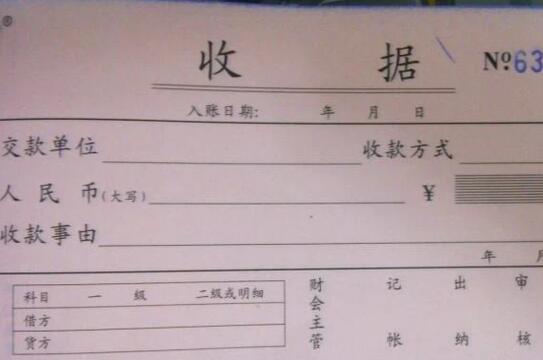 ®
收 据 №63
入账日期: 年 月 日
交款单位 收款方式
人民币(大写) ¥
收款事由
年 月
科目 一 级 二级或明细
借方
贷方
财会主管 记帐 出纳 审核